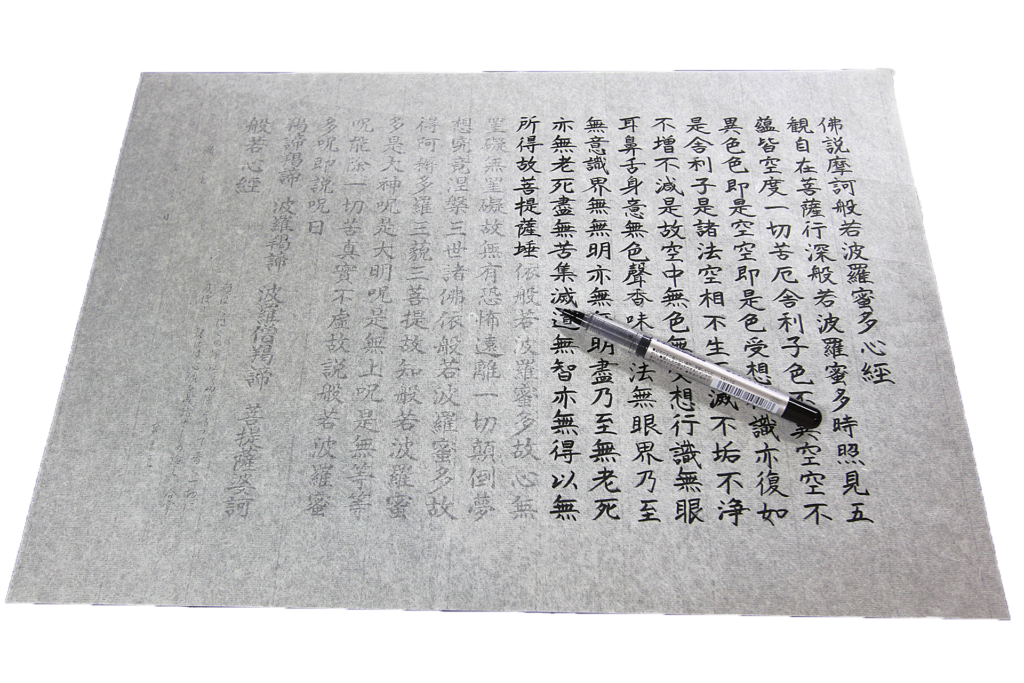 佛説摩訶般若波羅蜜多心經
観自在菩薩行深般若波羅蜜多時照見五
蘊皆空度一切苦厄舍利子色不異空空不
異色色即是空空即是色受想識亦復如
是舍利子是諸法空相不生滅不垢不浄
不増不減是故空中無色無想行識無眼
耳鼻舌身意無色聲香味法無眼界乃至
無意識界無無明亦無明盡乃至無老死
亦無老死盡無苦集滅道無智亦無得以無
所得故菩提薩埵依般若波羅蜜多故心無
罣礙無罣礙故無有恐怖遠離一切顛倒夢
想究竟涅槃三世諸佛依般若波羅蜜多故
得阿耨多羅三藐三菩提故知般若波羅蜜
多是大神呪是大明呪是無上呪是無等等
呪能除一切苦真實不虚故説般若波羅蜜
多呪即説呪曰
羯諦羯諦 波羅羯諦 波羅僧羯諦 菩提薩婆訶
般若心經